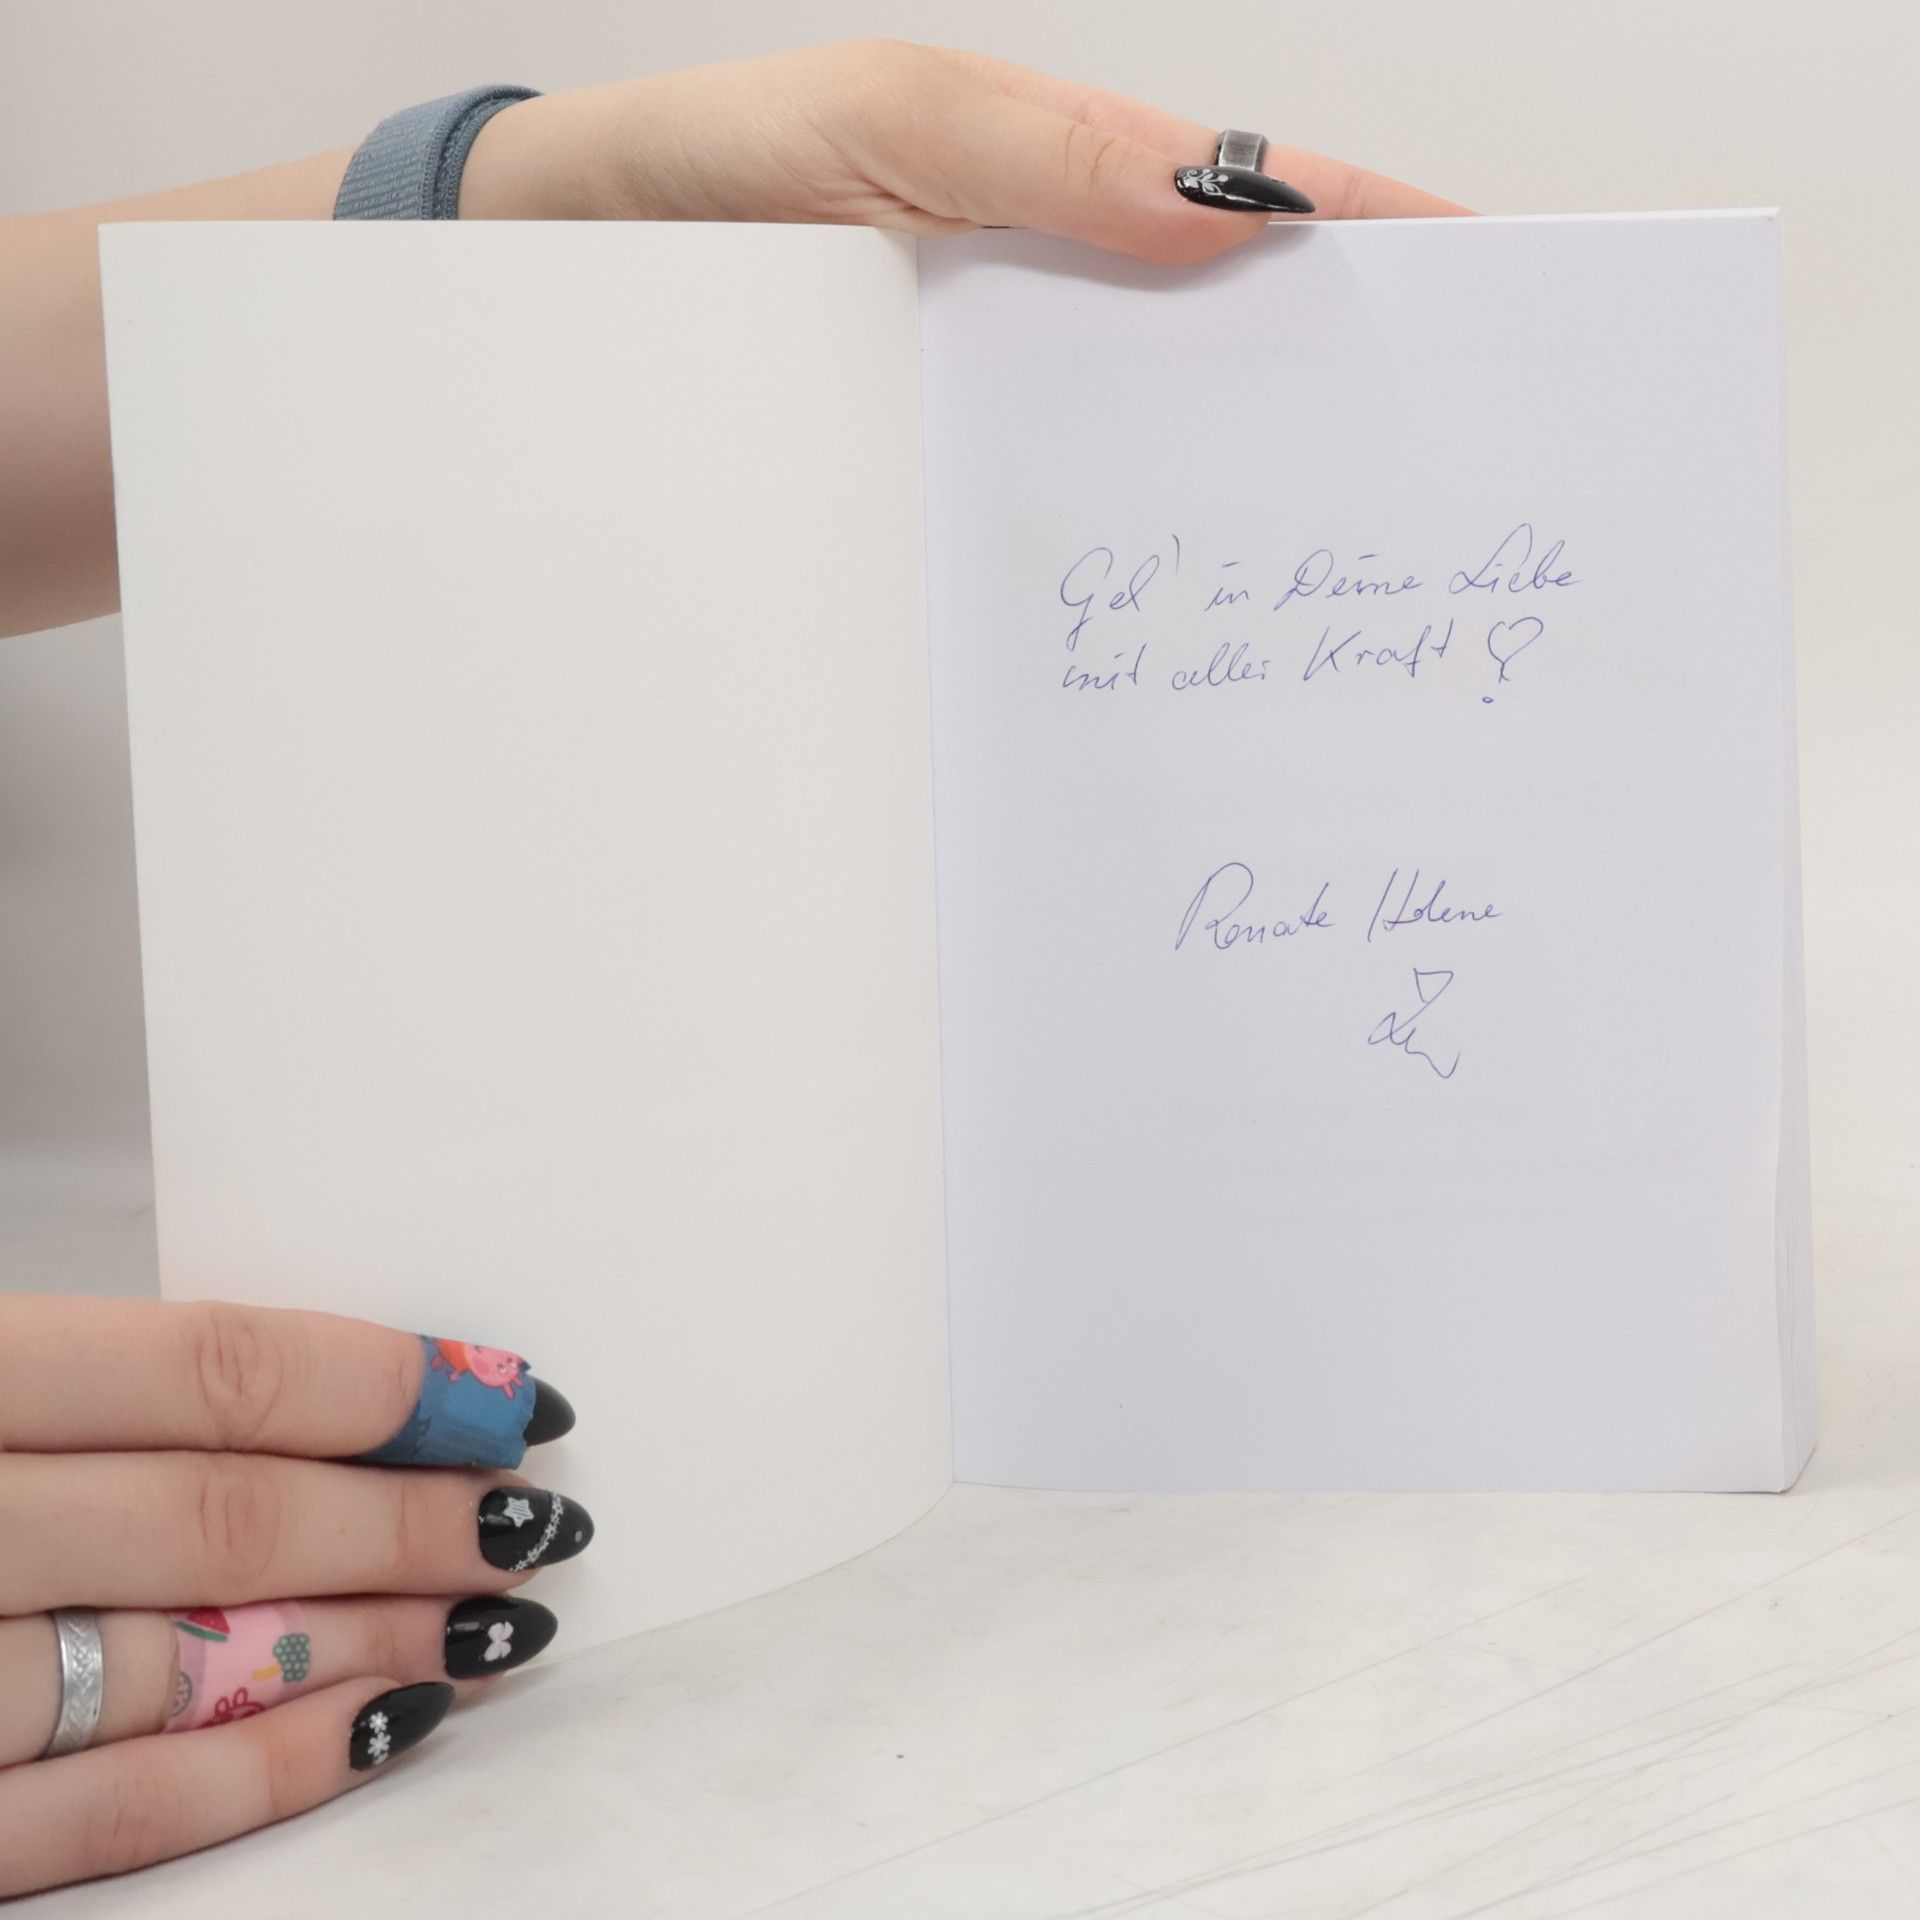 Geh' in Deine Liebe
mit aller Kraft
Renate Helene